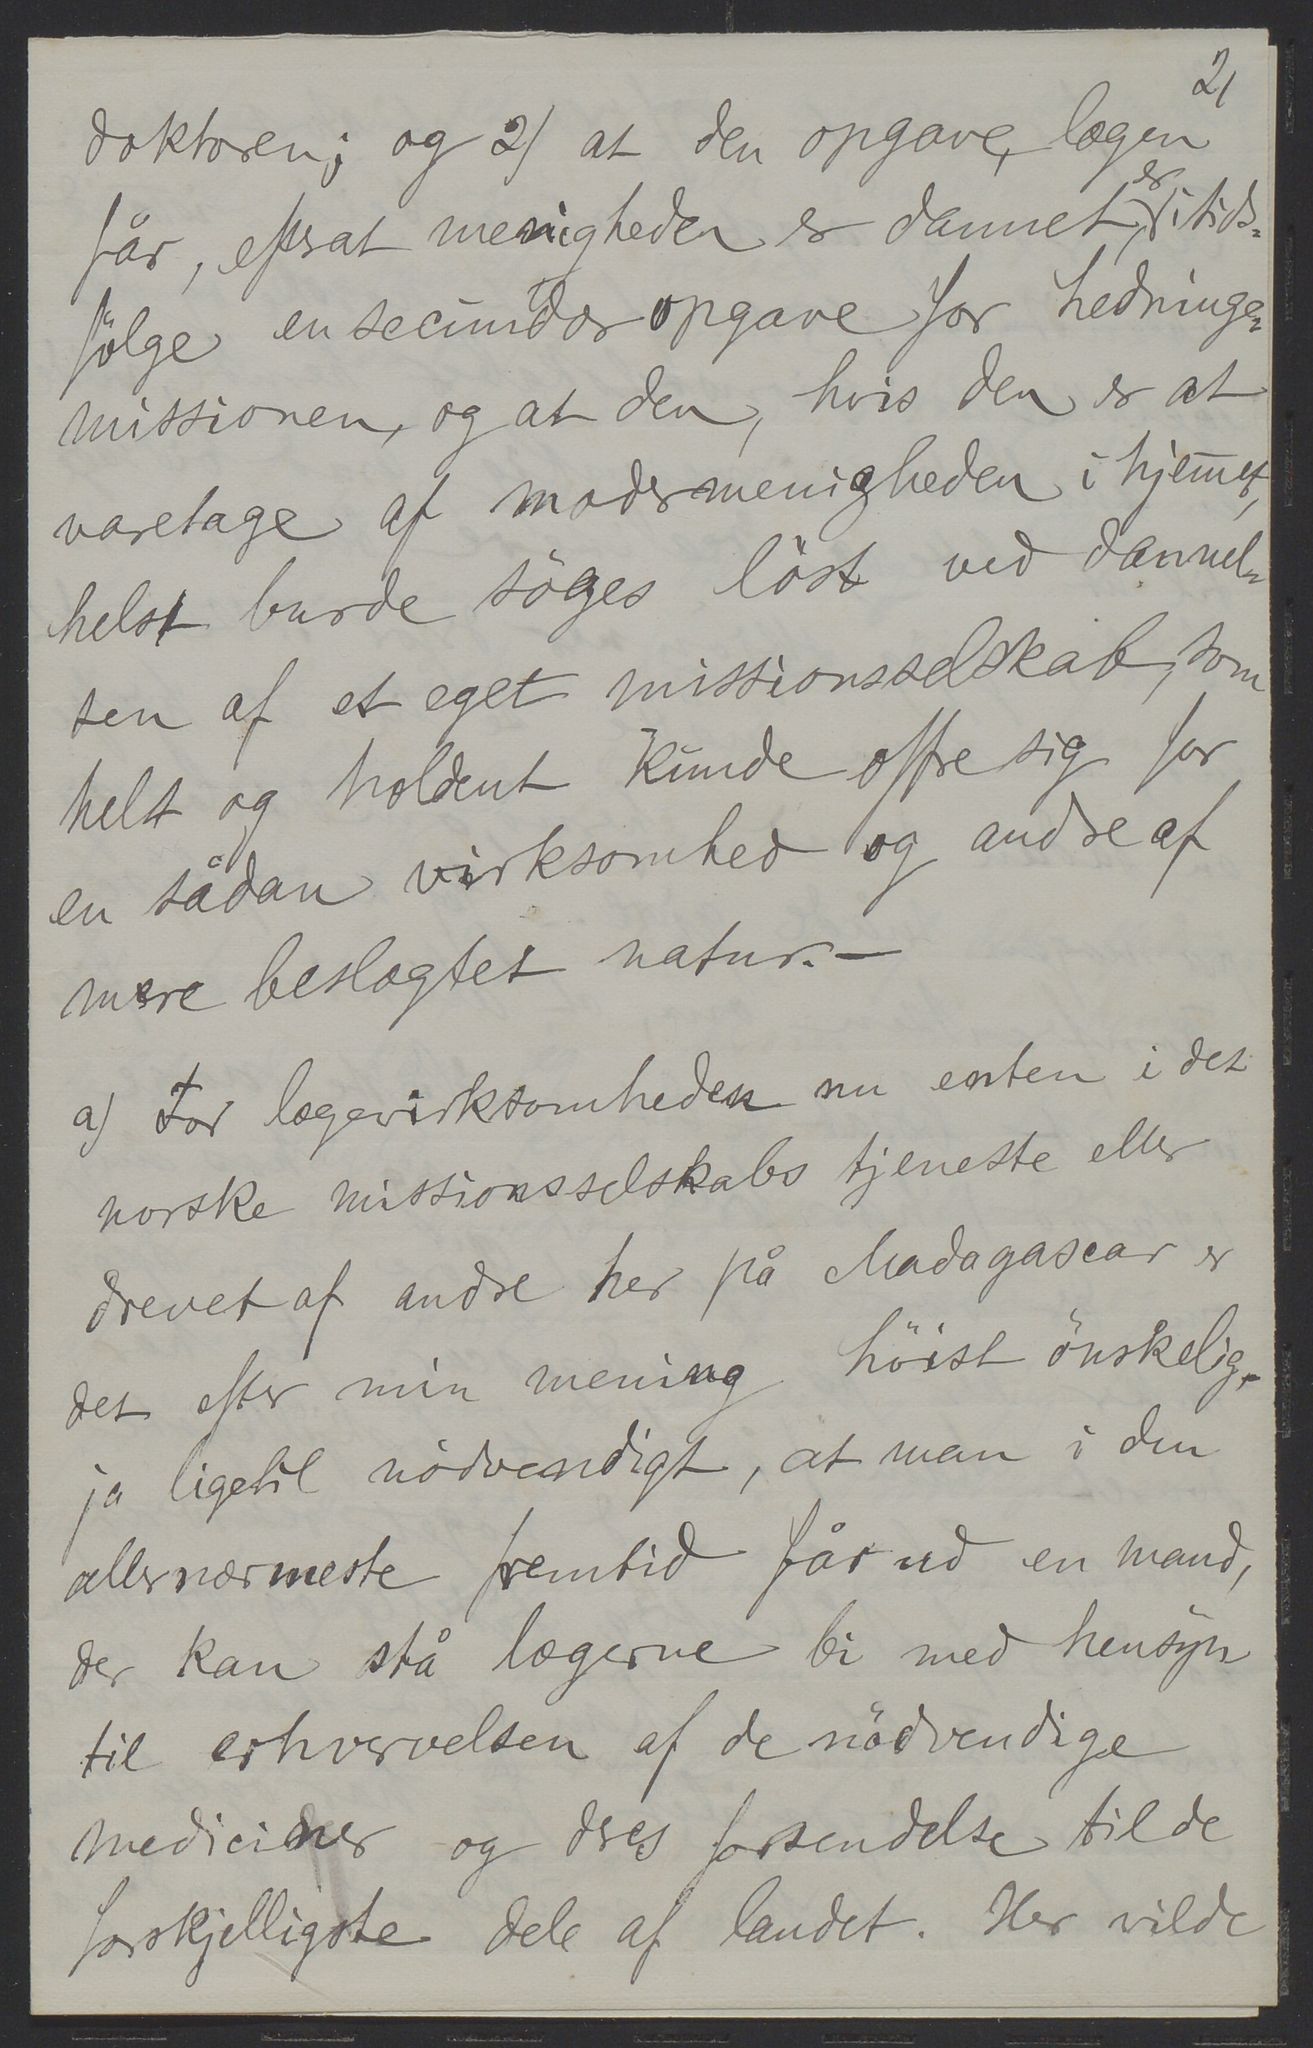 21
doktoren; og 2) at den opgave, lægen
får, efterat menigheden er dannet, er i tids-
følge en secundær opgave for hedninge-
missionen, og at den, hvis den er at
varetage af modermenigheden i hjem̄et,
helst burde söges löst ved dannel-
sen af et eget missionsselskab, som
helt og holdent kunde offre sig for
en sådan virksomhed og andre af
mere beslægtet natur. —
a) For lægevirksomheden nu enten i det
norske missionsselskabs tjeneste eller
drevet af andre her på Madagascar er
det efter min mening höist önskelig,
ja ligetil nödvendigt, at man i den
allernærmeste fremtid får ud en mand,
der kan stå lægerne bi med hensyn
til erhvervelsen af de nödvendige
mediciner og deres forsendelse til de
forskjelligste dele af landet. Her vilde